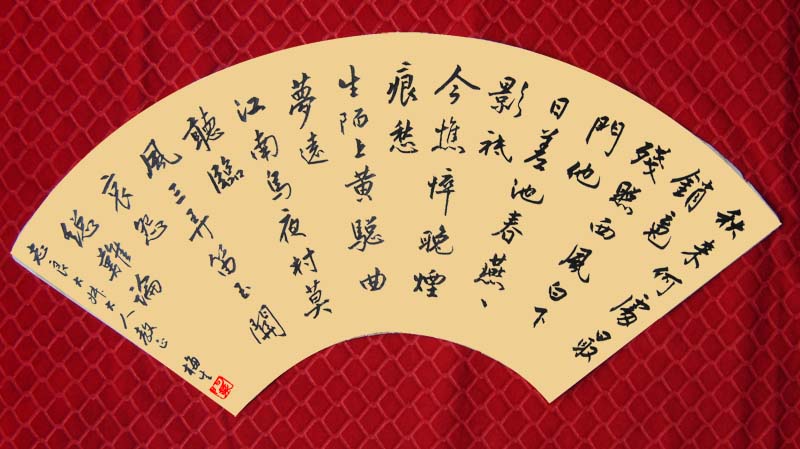 秋来何處最
銷魂
殘照西風白下
門他
日差池春燕
影祗
今憔悴晚煙
痕愁
生陌上黄驄曲
夢遠
江南烏夜村莫
聽臨
風三弄笛玉關
哀怨
總難論
人教正
梅生